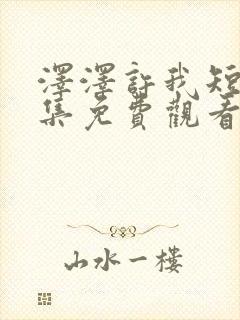 澤澤許我短
集免費觀看
山水一樓